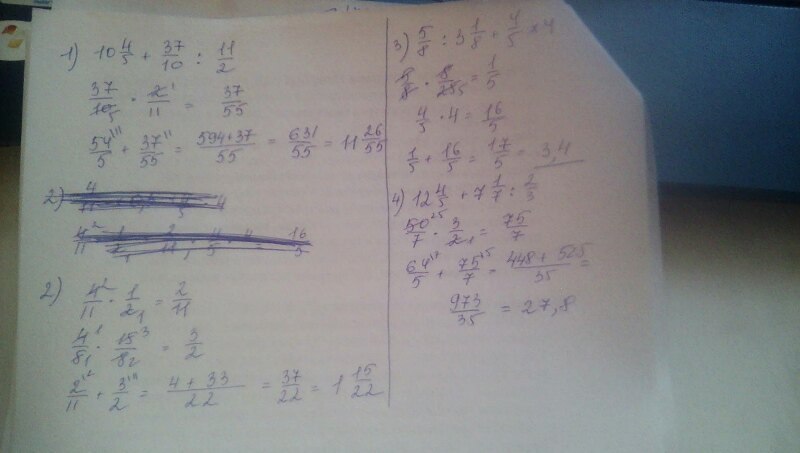 1) 10 4/5 + 37/10 : 11/2
37/10 5 · 2 1/11 = 37/55
54 11/5 + 37 1/55 = 594+37/55 = 631/55 = 11 26/55
2)
2) 4 2/11 · 1/2 1 = 2/11
4 1/8 1 · 15 3/8 2 = 3/2
2 2/11 + 3 11/2 = 4 + 33/22 = 37/22 = 1 15/22
3) 5/8 : 3 1/8 + 4/5 × 4
5/8 · 8/25 5 = 1/5
4/5 · 4 = 16/5
1/5 + 16/5 = 17/5 = 3,4
4) 12 4/5 + 7 1/7 : 2/3
50 25/7 · 3/2 1 = 75/7
64 7/5 + 75 5/7 = 448 + 525/35 =
973/35 = 27,8